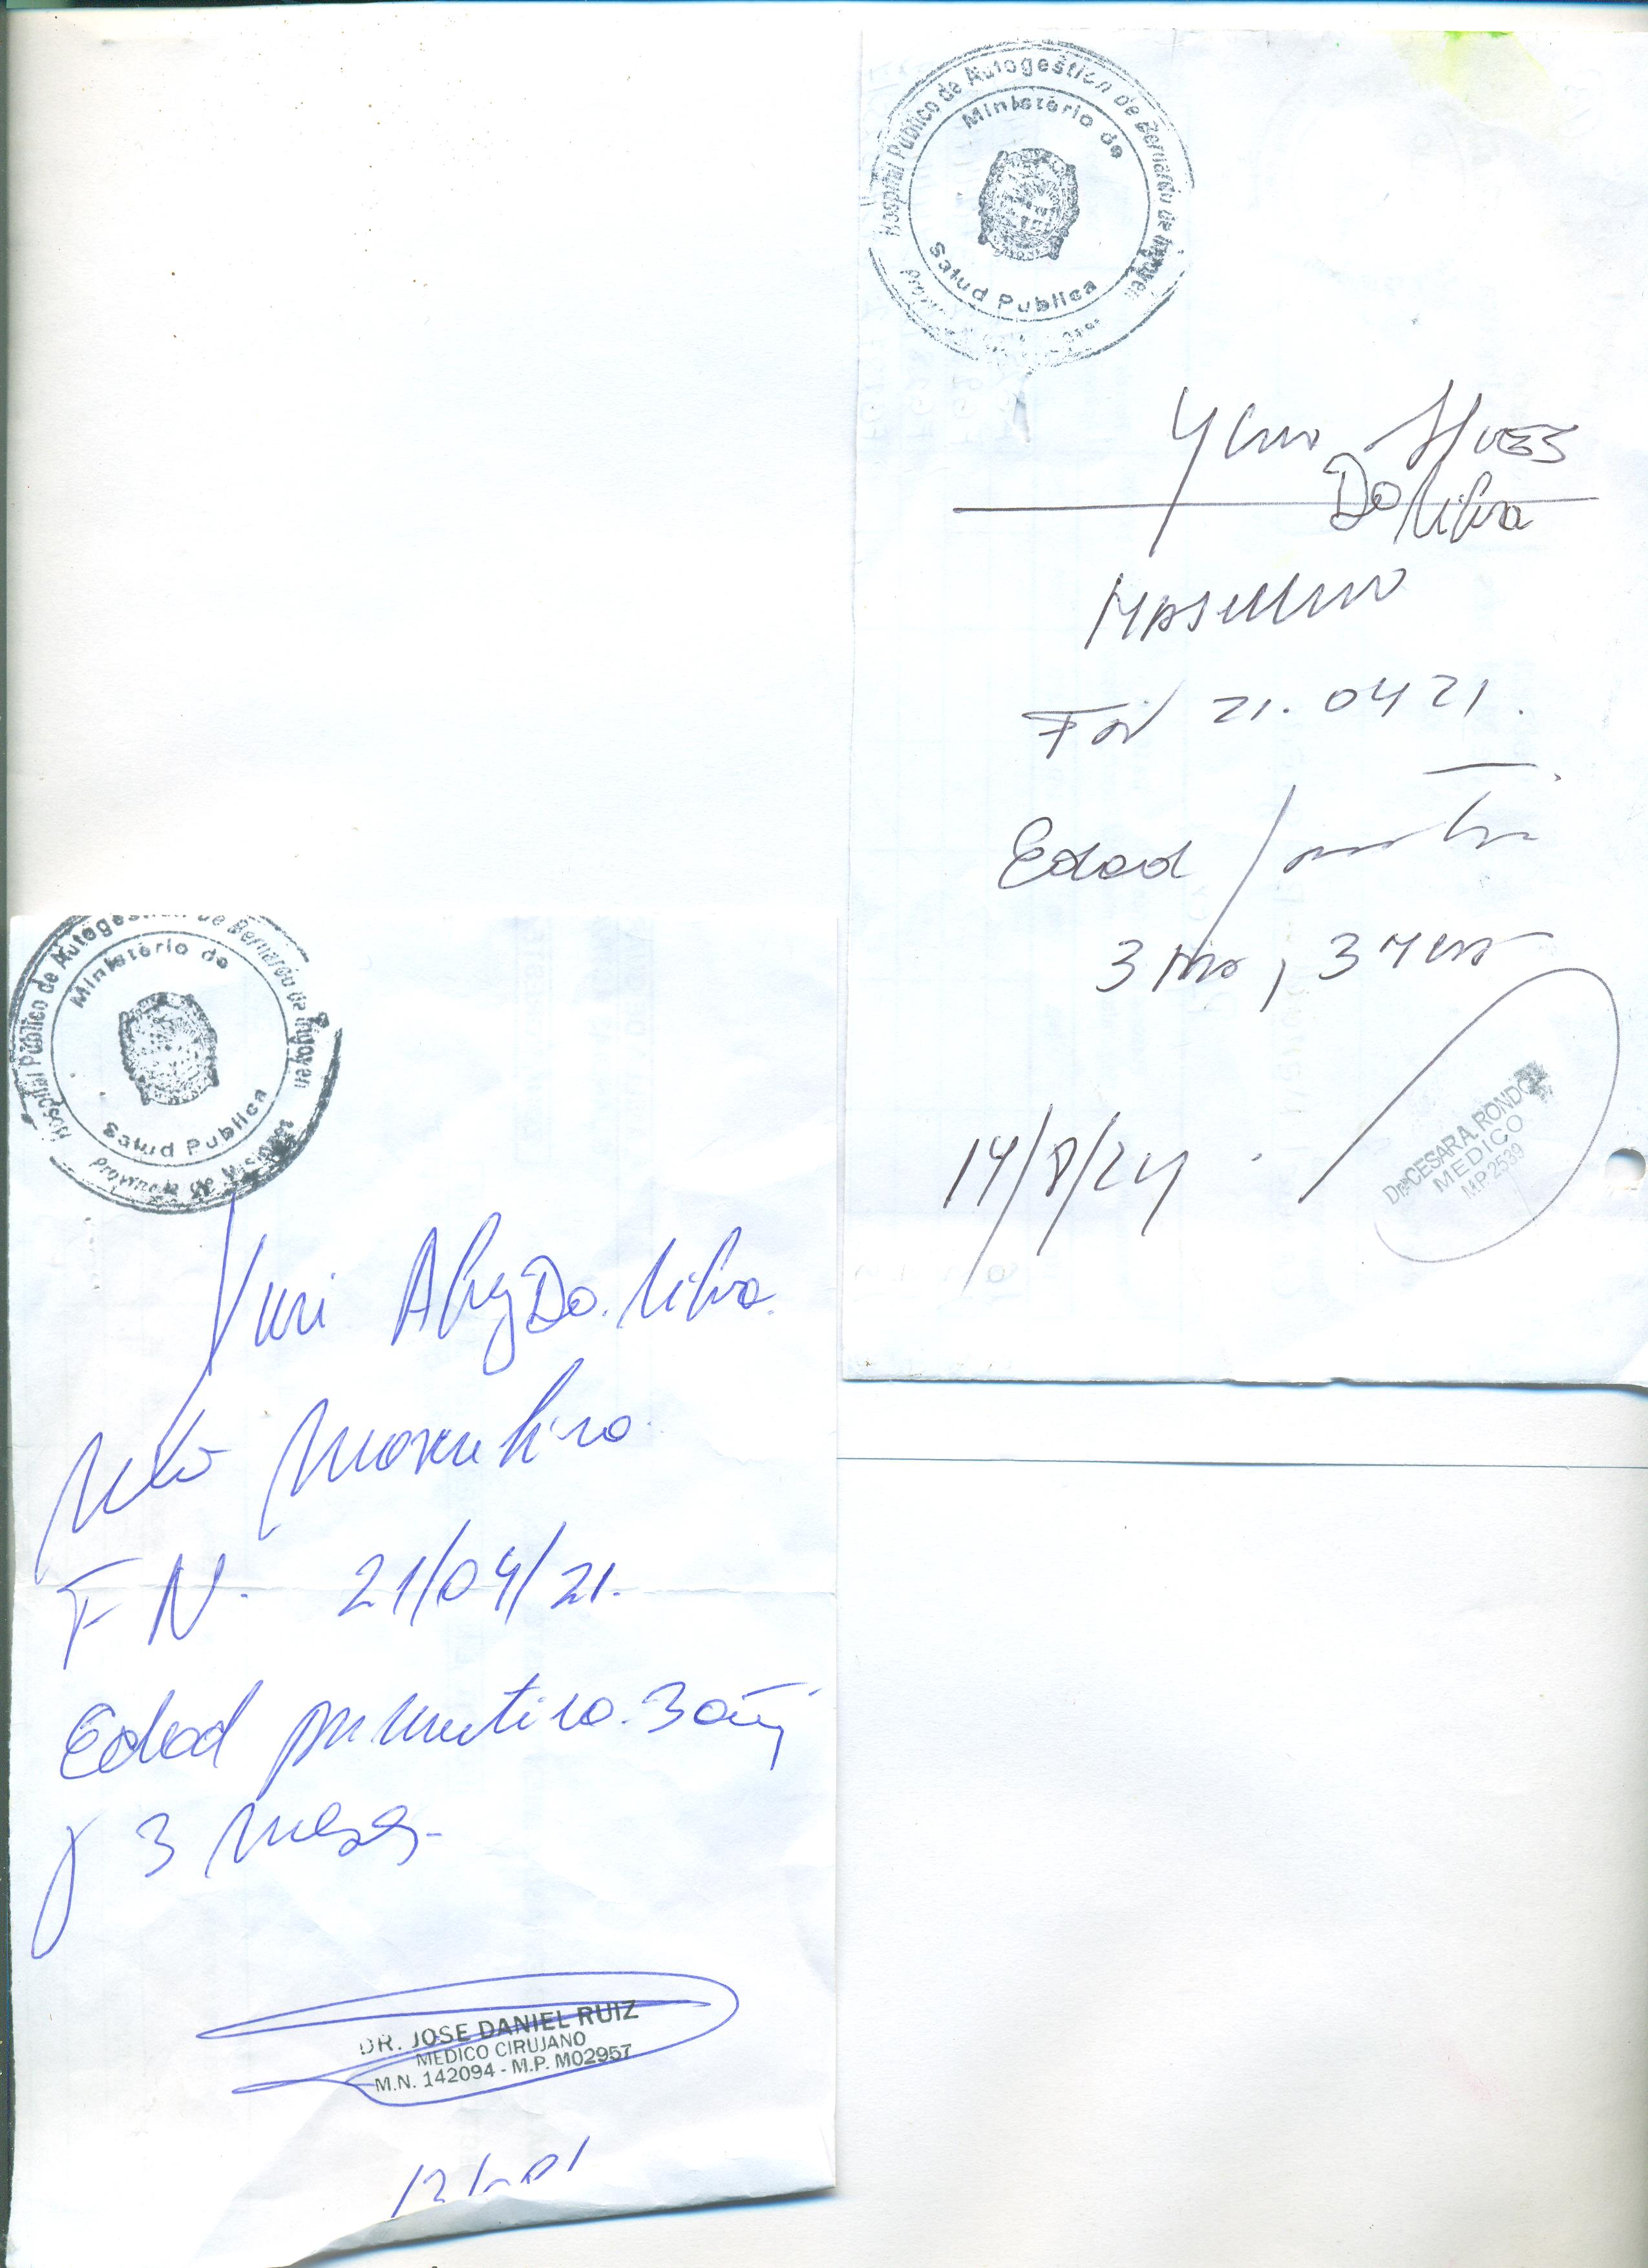 Hospital Público de Autogestión de Bernardo de Irigoyen
Ministério de
Salud Publica
Alves
Da Silva
Masculino
FN 21.04 21.
Edad
3 , 3
14/8/24
Dr. CESAR A. RONDO
MEDICO
MP. 2539
Hospital Público de Autogestión de Bernardo de Irigoyen
Ministério de
Salud Publica
Provincia de Misiones
Yuri Alves Da Silva.
Masculino.
F N. 21/04/21.
Edad 3 años
y 3 meses.
DR. JOSE DANIEL RUIZ
MEDICO CIRUJANO
M.N. 142094 - M.P. M02957